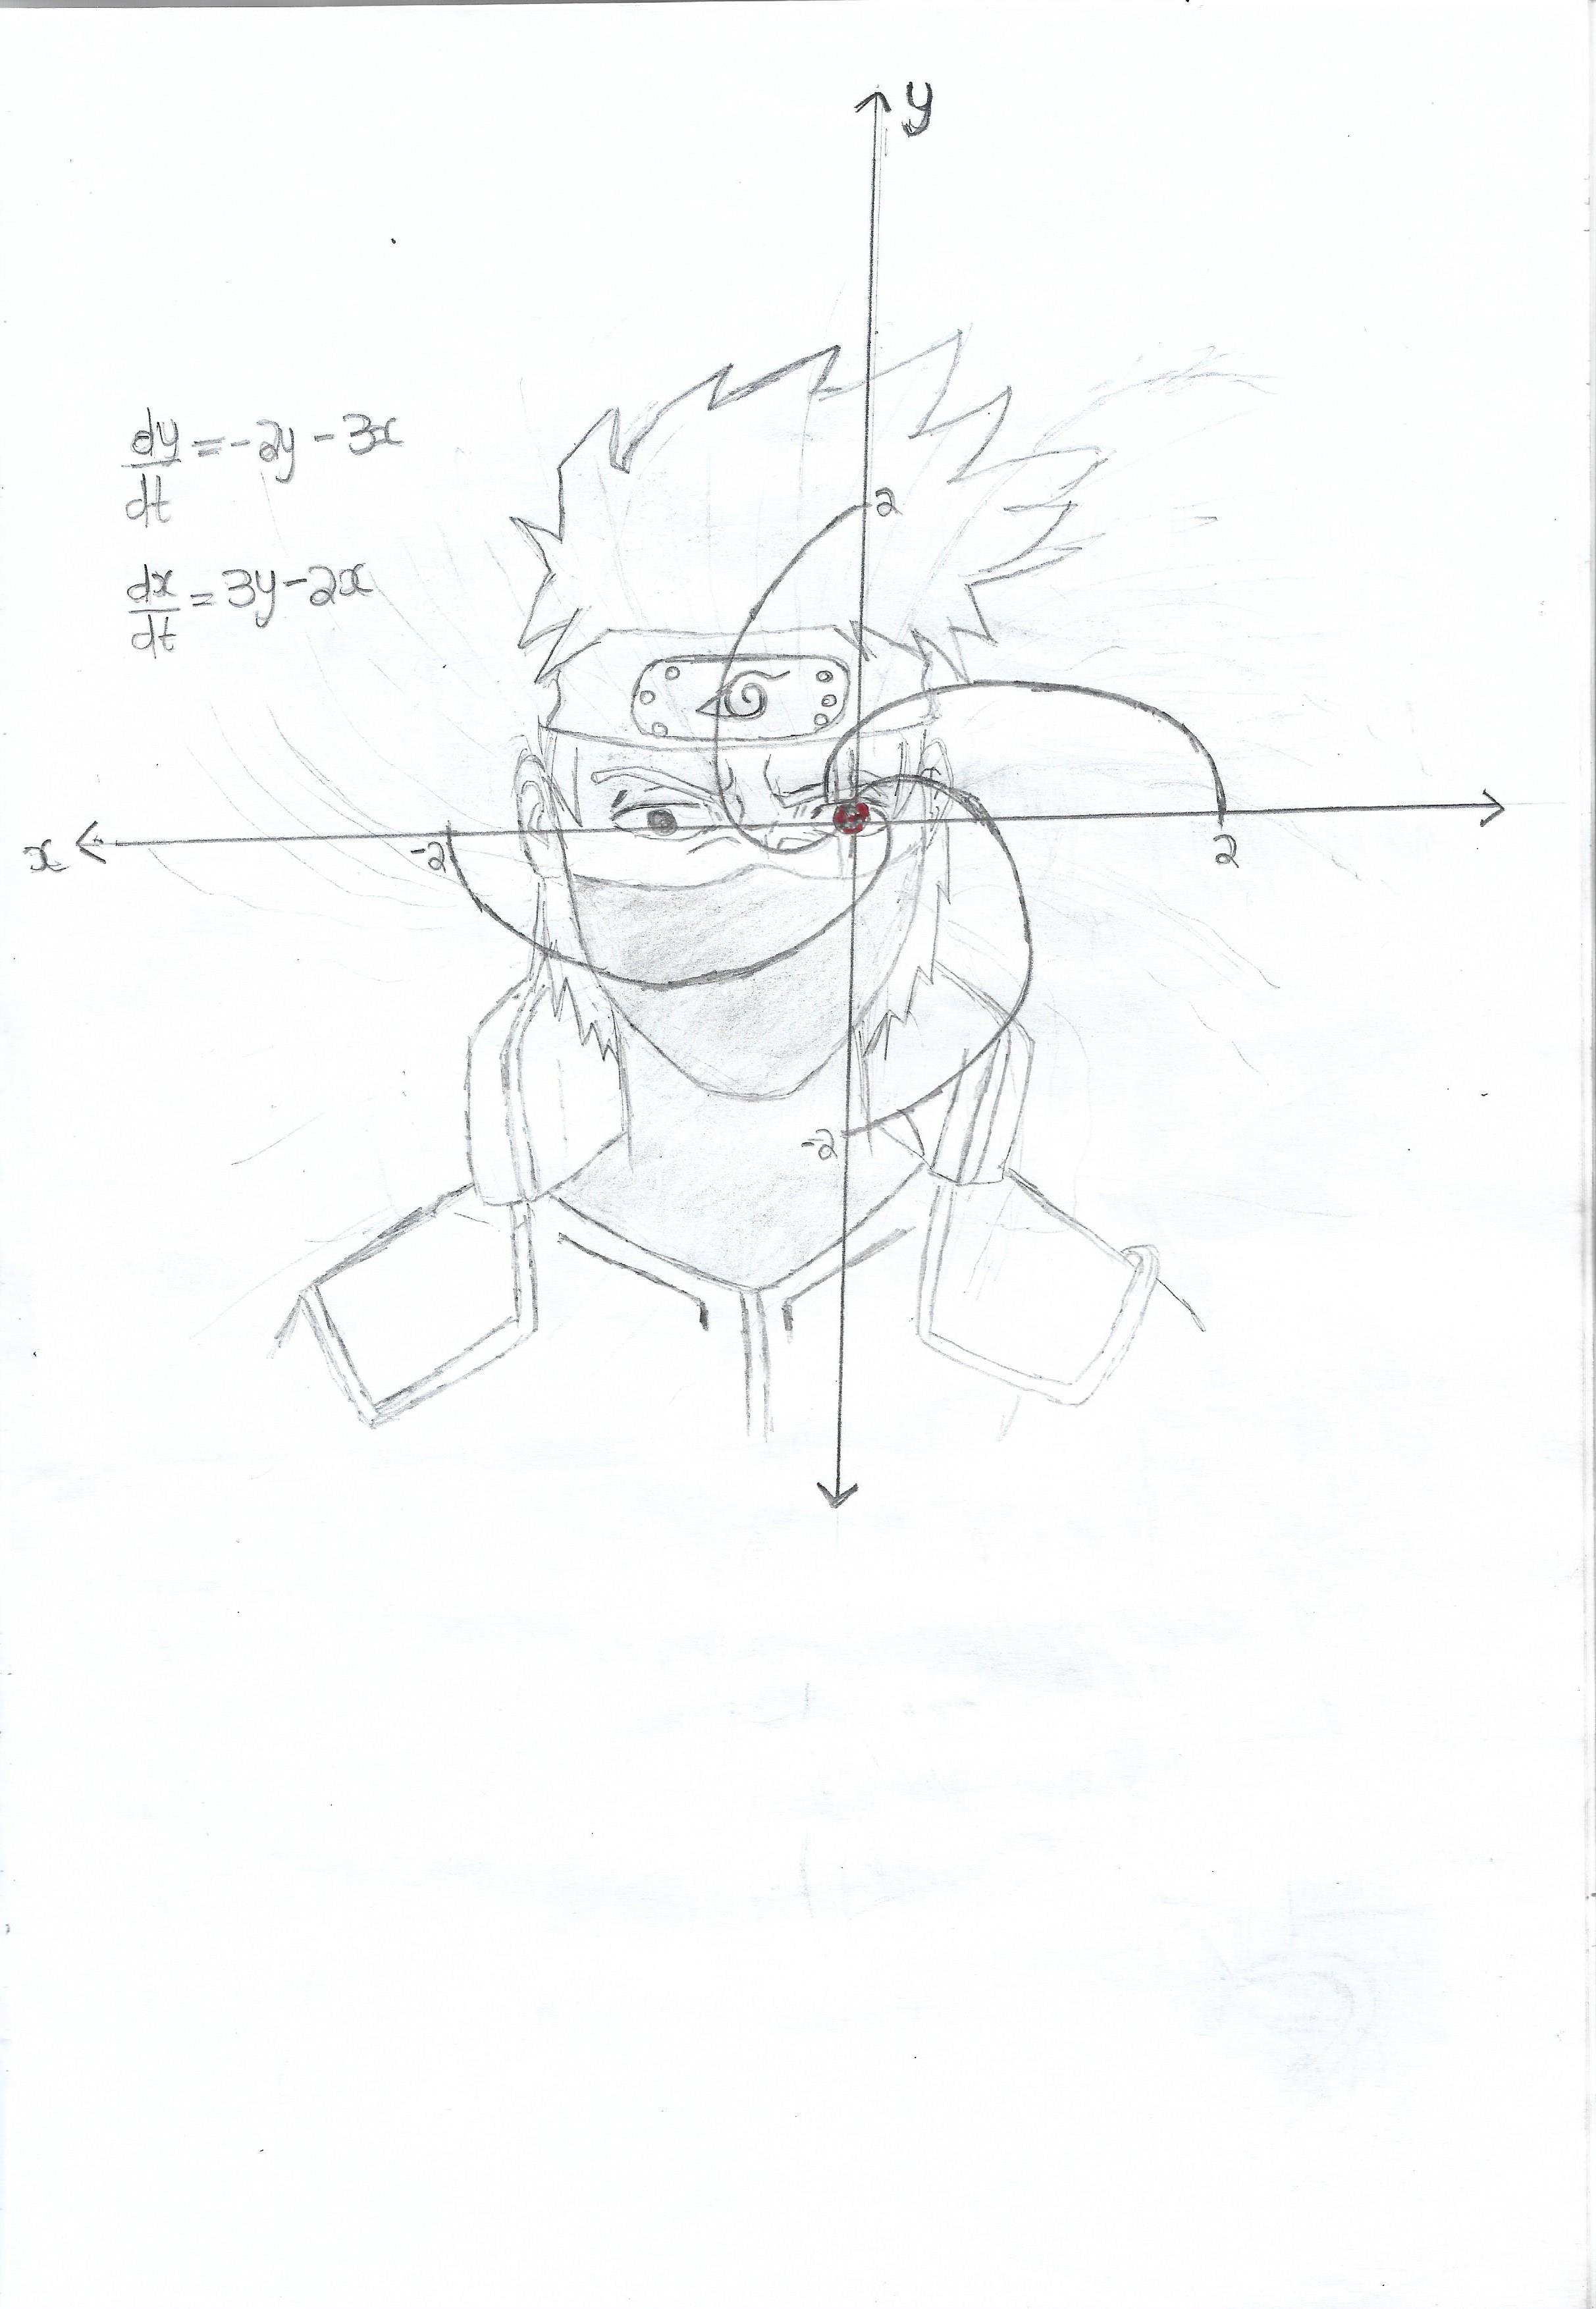 y
dy/dt = -2y - 3x
dx/dt = 3y - 2x
2
x
-2
2
-2